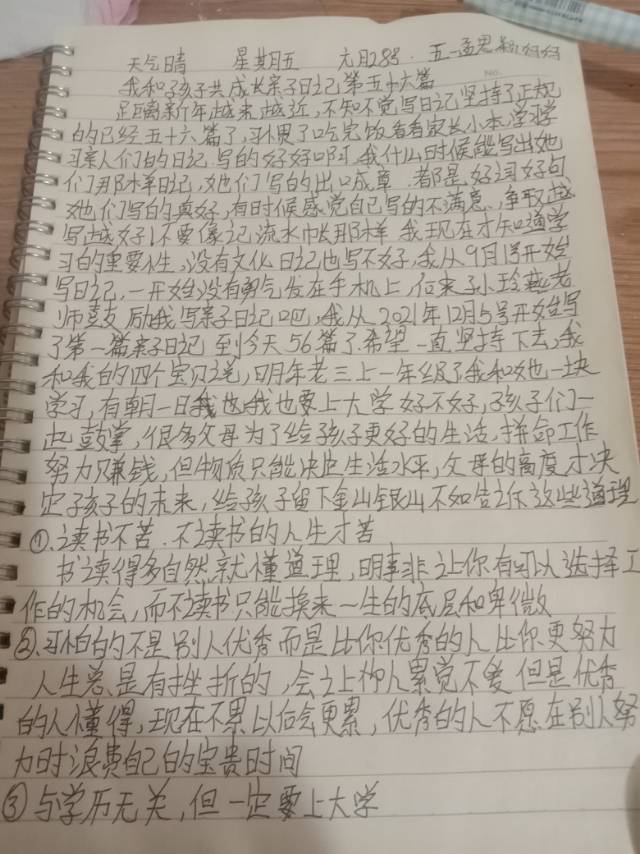 天气晴 星期五 元月28号. 五一孟思颖妈妈
我和孩子共成长亲子日记第五十六篇
距离新年越来越近,不知不觉写日记坚持了正规
的已经五十六篇了,习惯了吃完饭看看家长小本,学学
亲人们的日记,写的好好啊,我什么时候能写出她
们那样日记,她们写的出口成章,都是好词好句
她们写的真好,有时候感觉自己写的不满意,争取越
写越好!不要像记流水帐那样 我现在才知道学
习的重要性,没有文化日记也写不好,我从9月1号开始
写日记,一开始没有勇气发在手机上,后来孙玲燕老
师鼓励我写亲子日记吧,我从2021年12月5号开始写
了第一篇亲子日记 到今天56篇了.希望一直坚持下去,我
和我的四个宝贝说,明年老三上一年级了我和她一块
学习,有朝一日我也我也要上大学好不好,孩子们一
起鼓掌,很多父母为了给孩子更好的生活,拼命工作
努力赚钱,但物质只能决定生活水平,父母的高度才决
定孩子的未来,给孩子留下金山银山不如告诉这些道理
①.读书不苦.不读书的人生才苦
书读得多自然就懂道理,明事非让你有可以选择工
作的机会,而不读书只能换来一生的底层和卑微
②.可怕的不是别人优秀而是比你优秀的人比你更努力
人生总是有挫折的,会让你人累觉不爱但是优秀
的人懂得,现在不累以后会更累,优秀的人不愿在别人努
力时浪费自己的宝贵时间
③与学历无关,但一定要上大学